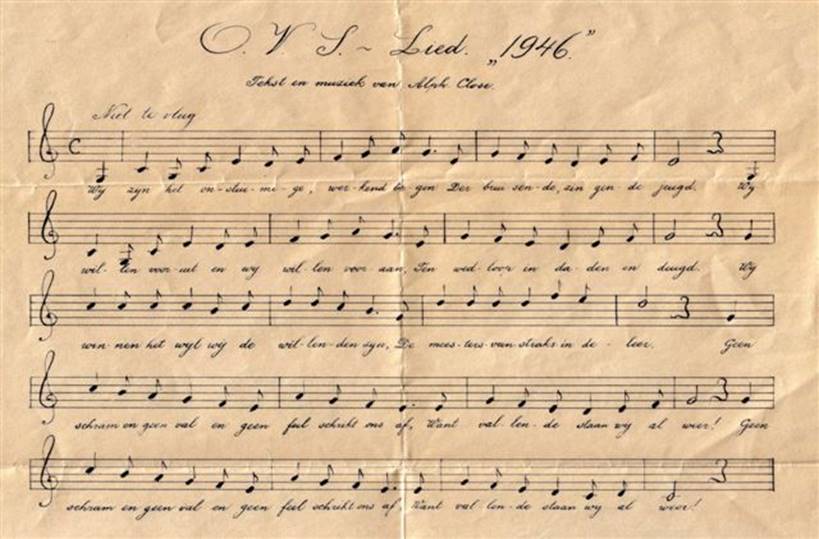 O. V. S. ~ Lied. „1946.”
Tekst en muziek van Alph. Close.
Niet te vlug
C
Wij zijn het on-stui-mi-ge, wer-kend be-gin Der brui sen-de, zin gen-de jeugd. Wij
wil-len voor-uit en wij wil-len voor aan, Ten wed-loop in da-den en deugd. Wij
win-nen het wijl wij de wil-len-den zijn, De mees-ters van straks in de - leer. Geen
schram en geen val en geen feil schrikt ons af, Want val-len-de staan wij al weer! Geen
schram en geen val en geen feil schrikt ons af, Want val-len-de staan wij al weer!